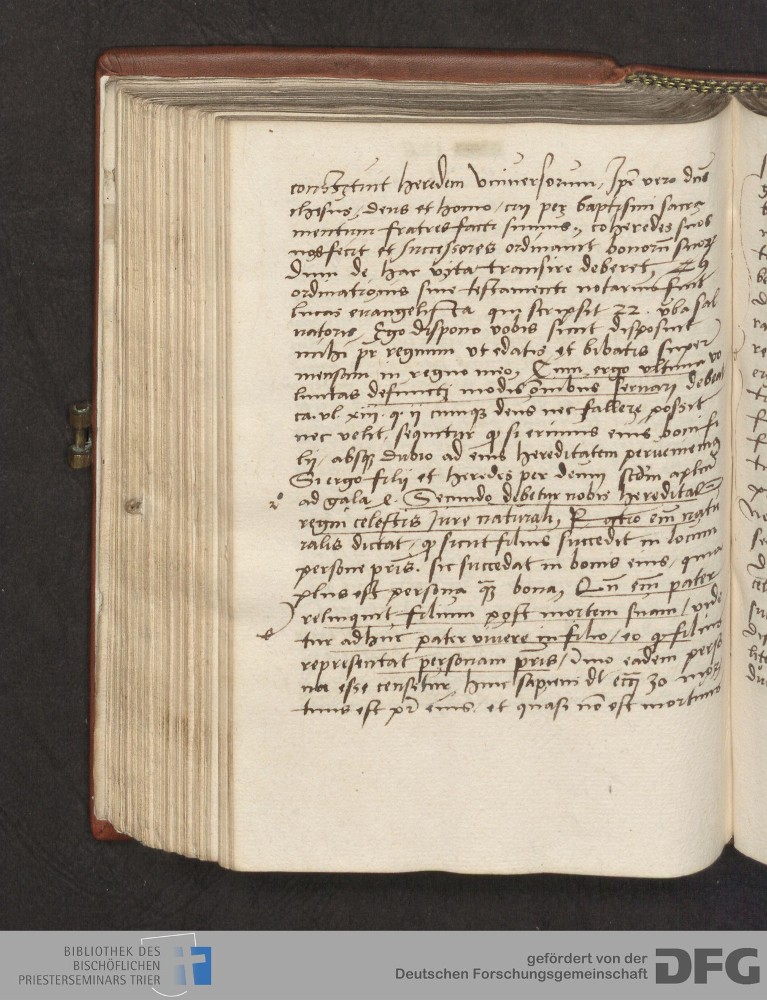 constituit heredem vniuersorum, Ipe vero dns
ihesus, deus et homo, cui per baptismi sacra
mentum fratres facti sumus, coheredes suos
nos fecit et successores ordinauit bonorum suorum
Dum de hac vita transire deberet,
ordinationis siue testamenti notarius fuit
lucas euangelista qui scripsit 22. verba sal
uatoris, Ego dispono vobis sicut disposuit
mihi pr regnum vt edatis et bibatis super
mensam in regno meo, Cum ergo vltima vo
luntas defuncti modis omnibus seruari debeat
ca. vl. xiii. q. ii cumque deus nec fallere possit
nec velit, sequitur q si erimus eius boni fi
lii, absque dubio ad eius hereditatem perueniemus
Si ergo filij et heredes per deum
2° ad gala Secundo debetur nobis hereditas
regni celestis Iure naturali, ratio em natu
ralis dictat, q sicut filius succedit in locum
persone pris. sic succedat in bonis eius, quia
plus est persona bona, em pater
relinquit filium post mortem suam, vide
tur adhuc pater viuere in filio, eo q filius
representat personam pris, ymo eadem perso
na esse censetur, hinc sapiens 30 mor
tuus est pr eius, et quasi no est mortuus
BIBLIOTHEK DES
BISCHÖFLICHEN
PRIESTERSEMINARS TRIER
gefördert von der
Deutschen Forschungsgemeinschaft
DFG